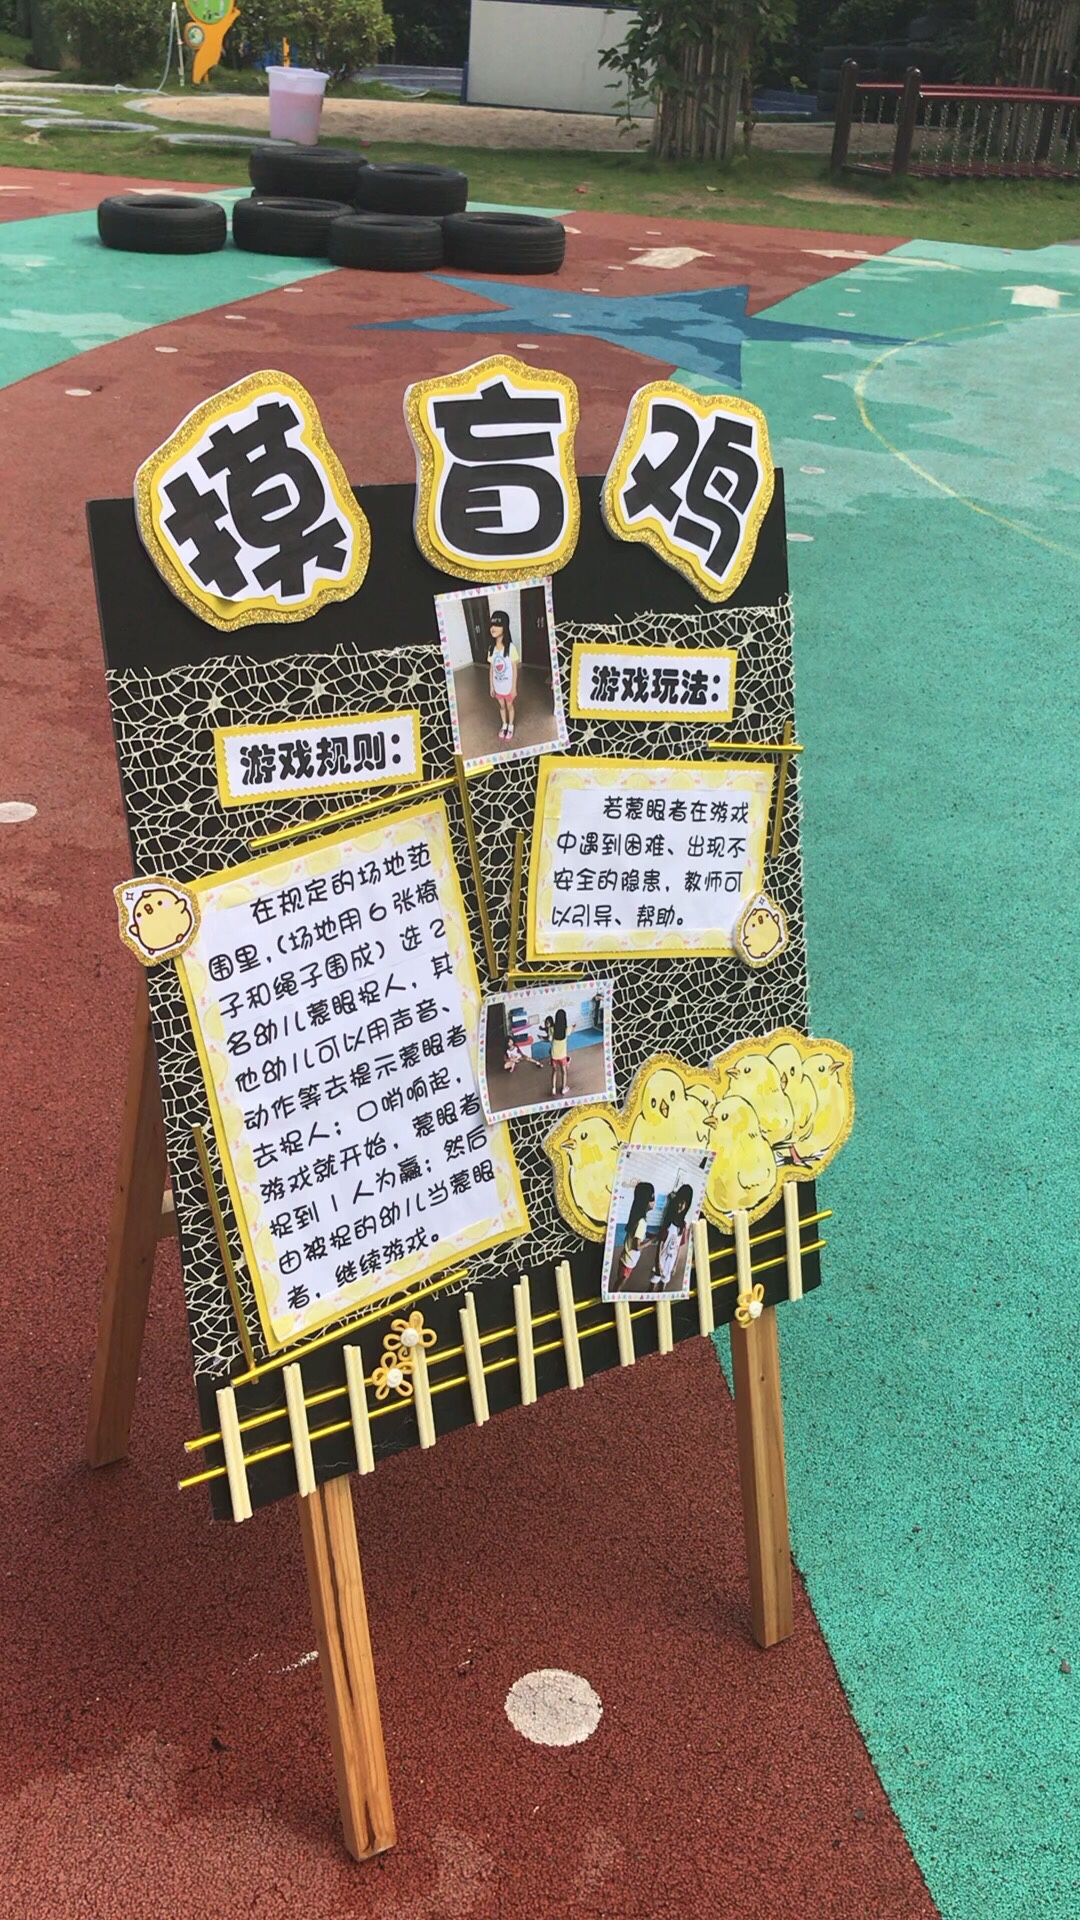 摸盲鸡
游戏规则：
在规定的场地范
围里，（场地用6张椅
子和绳子围成）选2
名幼儿蒙眼捉人，其
他幼儿可以用声音、
动作等去提示蒙眼者
去捉人；口哨响起，
游戏就开始，蒙眼者
捉到1人为赢；然后
由被捉的幼儿当蒙眼
者，继续游戏。
游戏玩法：
若蒙眼者在游戏
中遇到困难、出现不
安全的隐患，教师可
以引导、帮助。